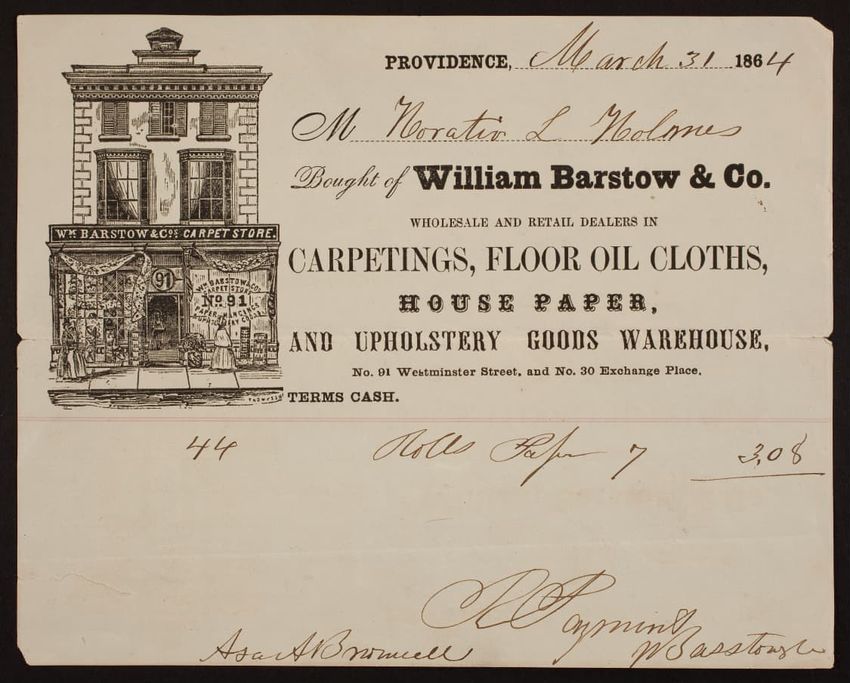 PROVIDENCE, March 31 1864
M Horatio L Holmes
Bought of William Barstow & Co.
WHOLESALE AND RETAIL DEALERS IN
CARPETINGS, FLOOR OIL CLOTHS,
HOUSE PAPER,
AND UPHOLSTERY GOODS WAREHOUSE,
No. 91 Westminster Street, and No. 30 Exchange Place.
TERMS CASH.
WM BARSTOW & COS CARPET STORE.
91
WM BARSTOW & CO
CARPET STORE
No 91
PAPER HANGINGS
44 Rolls Paper 7 3,08
R Payment
Asa A Brownell W Barstow & Co